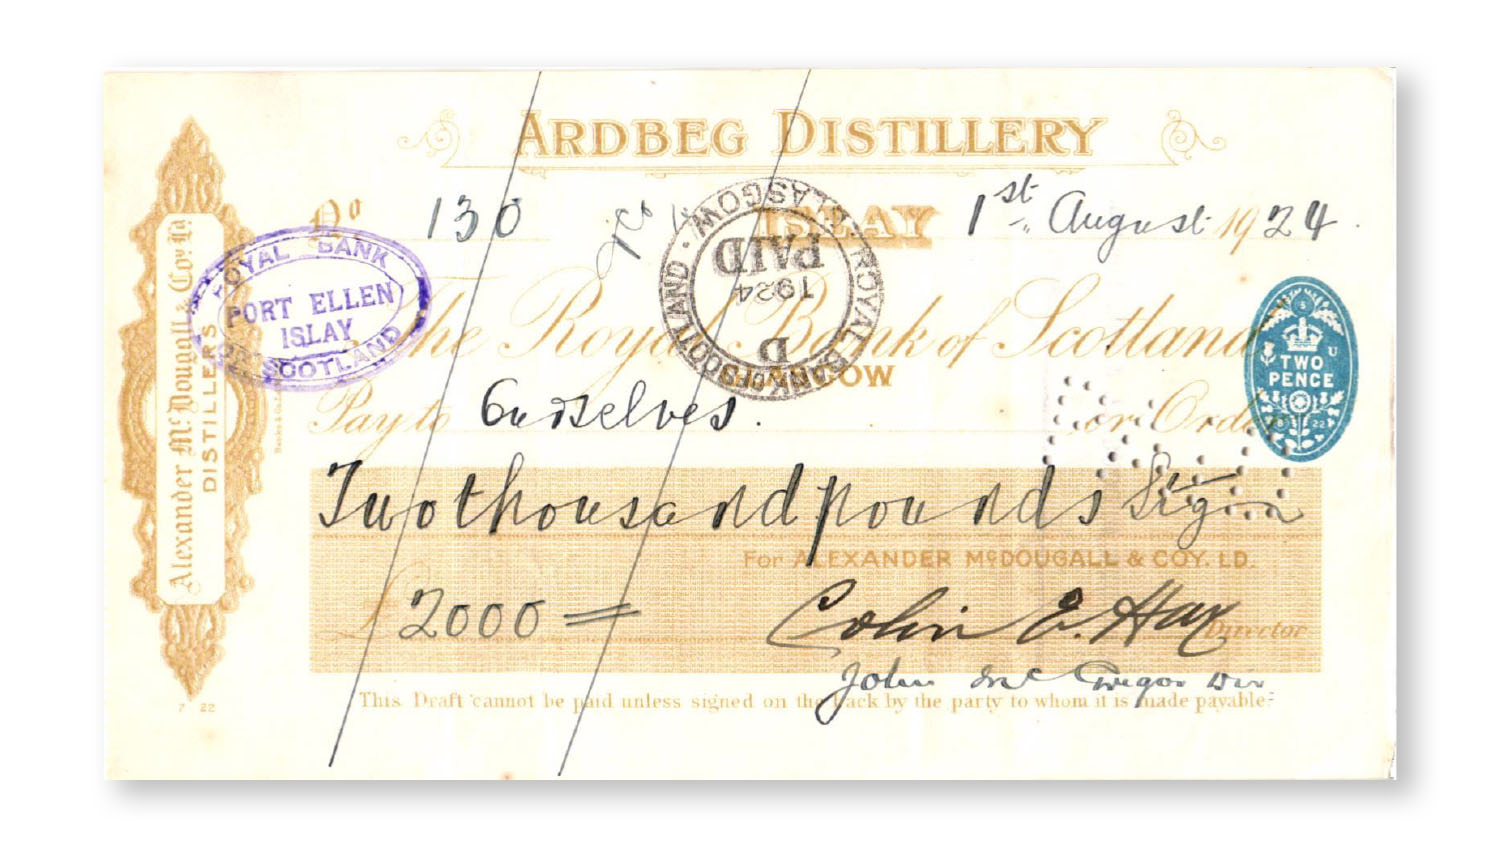 ARDBEG DISTILLERY
No 130
ISLAY 1st August 1924.
The Royal Bank of Scotland
GLASGOW
Pay to Ourselves. or Order
Two thousand pounds Stg
For ALEXANDER McDOUGALL & COY. LD.
£ 2000 =
Colin E. Hay Director
John McGregor Dir
This Draft cannot be paid unless signed on the back by the party to whom it is made payable.
Alexander McDougall & Coy. Ld.
DISTILLERS
7 22
ROYAL BANK
PORT ELLEN
ISLAY
OF SCOTLAND
ROYAL BANK OF SCOTLAND · GLASGOW
D
1924
PAID
TWO
PENCE